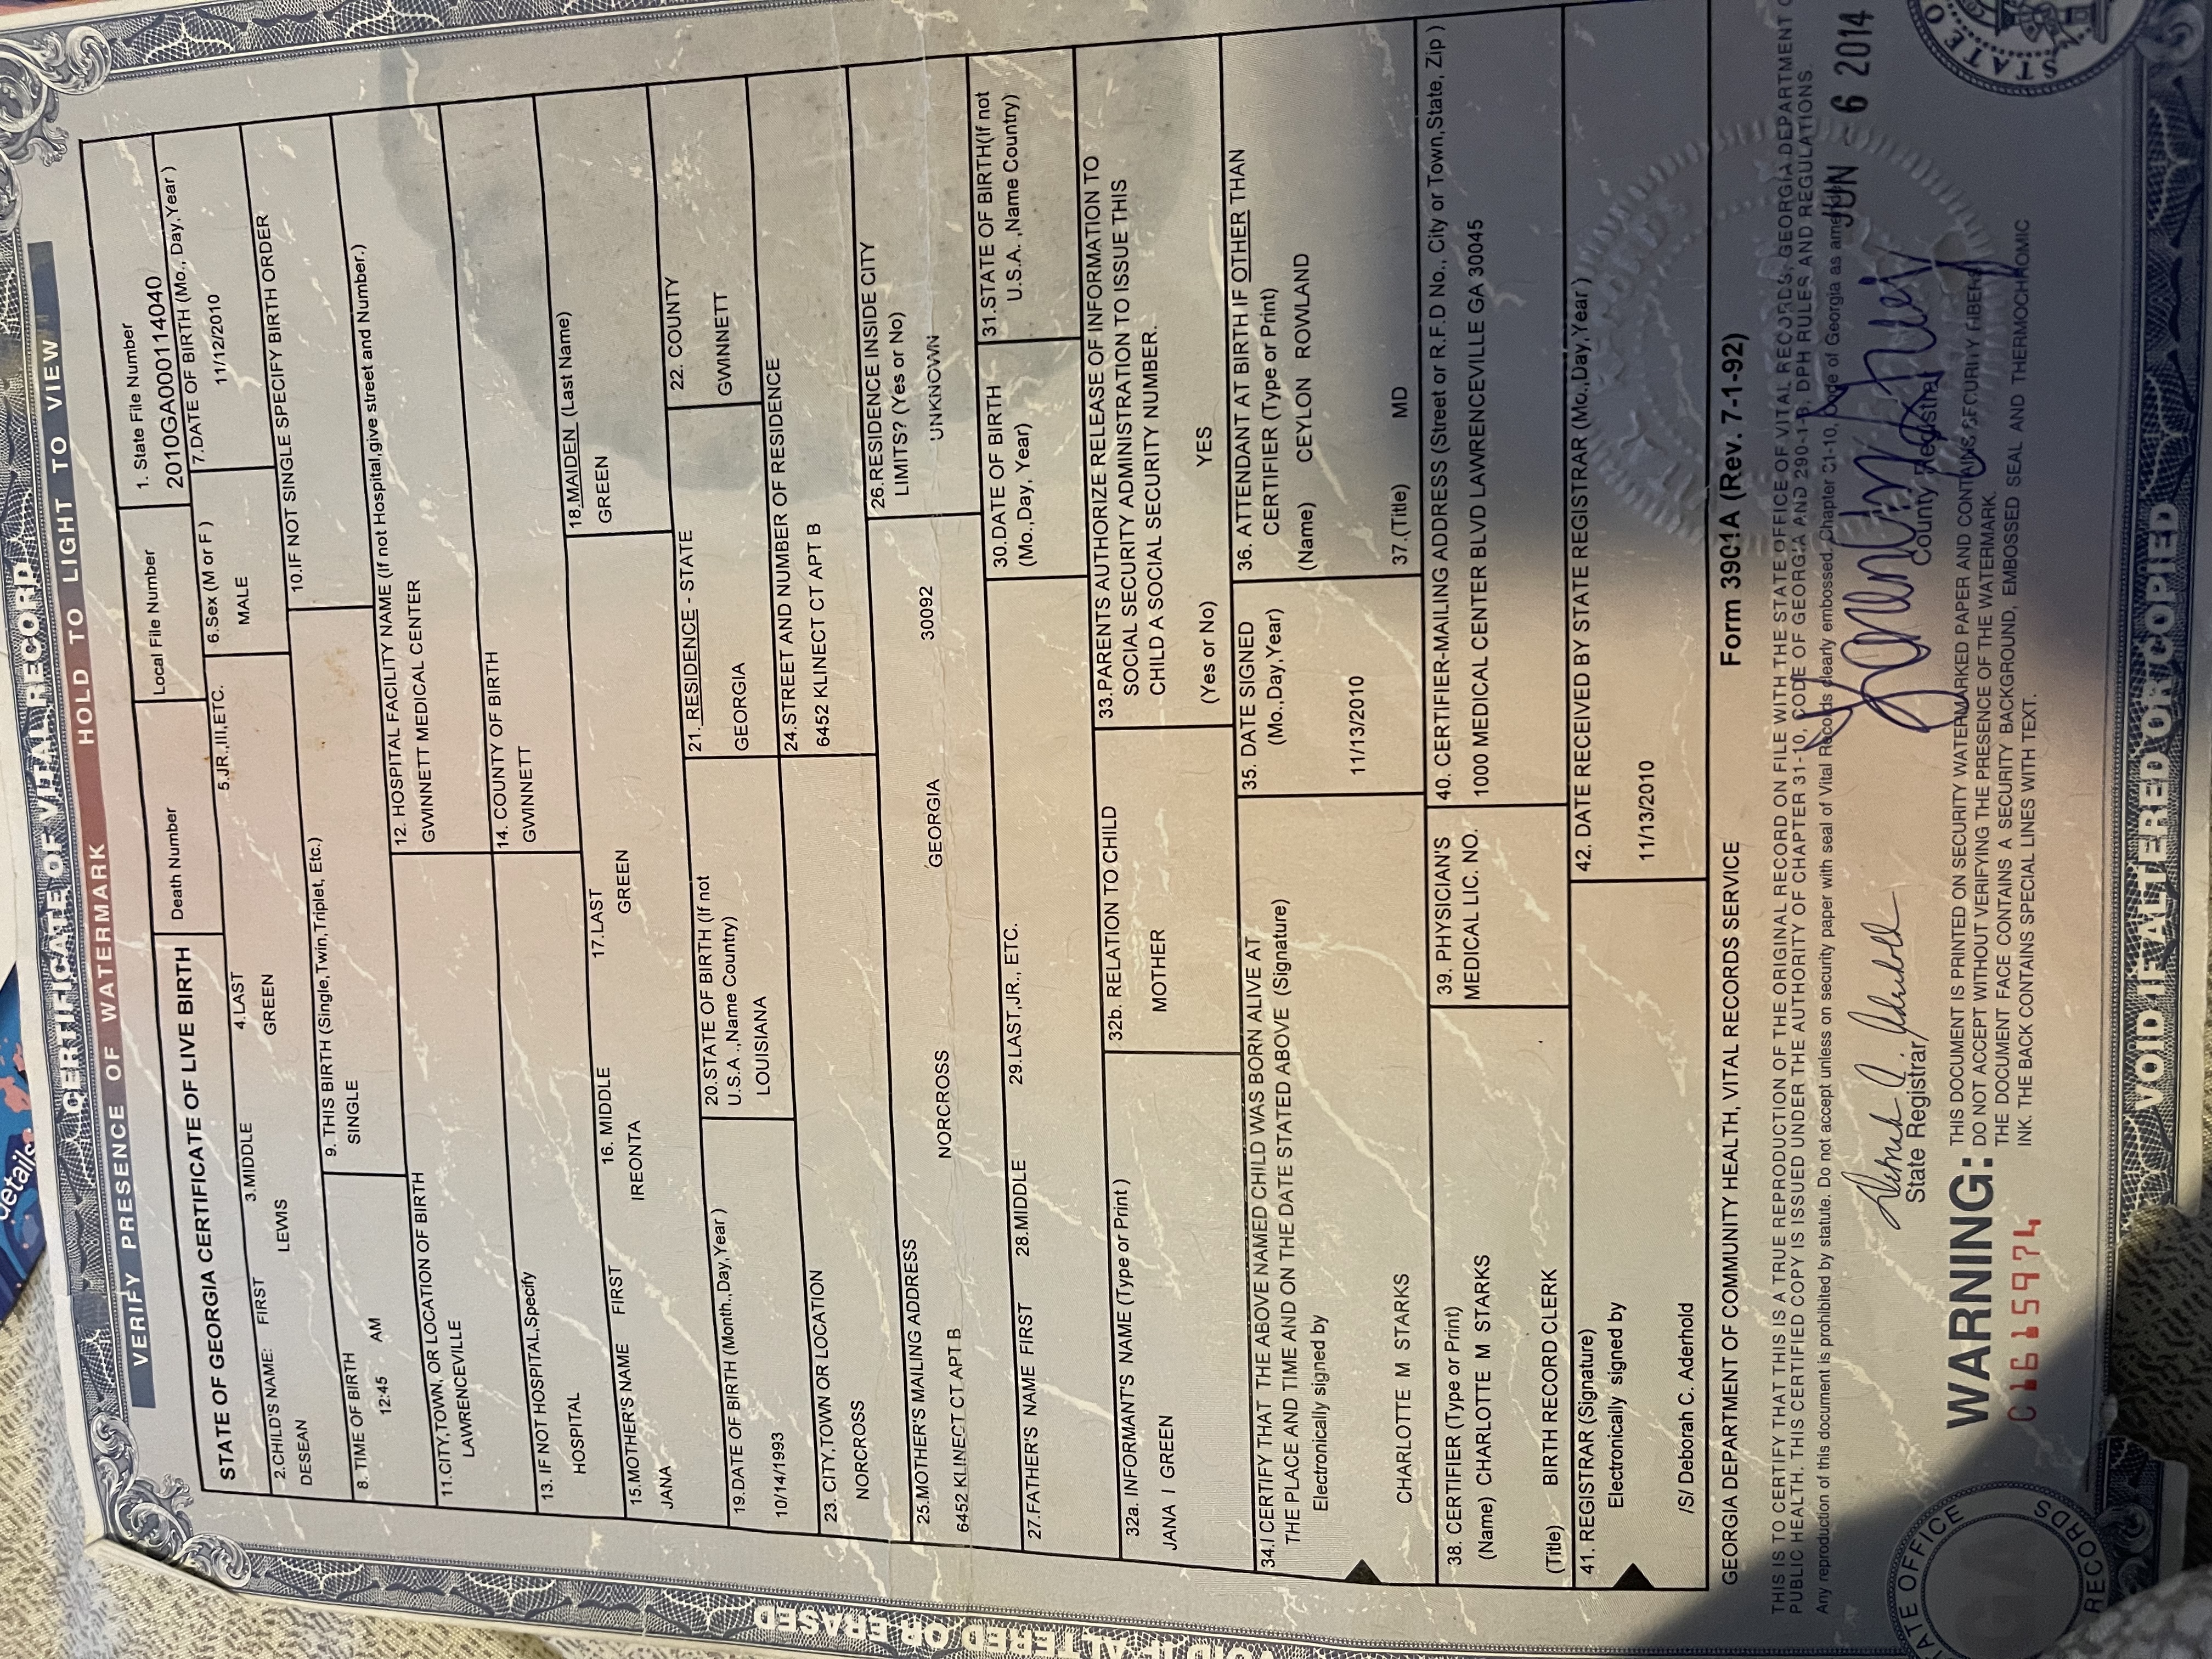 CERTIFICATE OF VITAL RECORD
VERIFY PRESENCE OF WATERMARK HOLD TO LIGHT TO VIEW
STATE OF GEORGIA CERTIFICATE OF LIVE BIRTH
Death Number
Local File Number
1. State File Number
2010GA000114040
2.CHILD'S NAME: FIRST 3.MIDDLE 4.LAST 5.JR.,III,ETC. 6.Sex (M or F ) 7.DATE OF BIRTH (Mo., Day,Year )
DESEAN LEWIS GREEN MALE 11/12/2010
8. TIME OF BIRTH 9. THIS BIRTH (Single,Twin,Triplet, Etc.) 10.IF NOT SINGLE SPECIFY BIRTH ORDER
12:45 AM SINGLE
11.CITY,TOWN, OR LOCATION OF BIRTH 12. HOSPITAL FACILITY NAME (If not Hospital,give street and Number.)
LAWRENCEVILLE GWINNETT MEDICAL CENTER
13. IF NOT HOSPITAL,Specify 14. COUNTY OF BIRTH
HOSPITAL GWINNETT
15.MOTHER'S NAME FIRST 16. MIDDLE 17.LAST 18.MAIDEN (Last Name)
JANA IREONTA GREEN GREEN
19.DATE OF BIRTH (Month.,Day,Year ) 20.STATE OF BIRTH (If not U.S.A .,Name Country) 21. RESIDENCE - STATE 22. COUNTY
10/14/1993 LOUISIANA GEORGIA GWINNETT
23. CITY,TOWN OR LOCATION 24.STREET AND NUMBER OF RESIDENCE
NORCROSS 6452 KLINECT CT APT B
25.MOTHER'S MAILING ADDRESS 26.RESIDENCE INSIDE CITY LIMITS? (Yes or No)
6452 KLINECT CT APT B NORCROSS GEORGIA 30092 UNKNOWN
27.FATHER'S NAME FIRST 28.MIDDLE 29.LAST,JR., ETC. 30.DATE OF BIRTH (Mo.,Day, Year) 31.STATE OF BIRTH(If not U.S.A. ,Name Country)
32a. INFORMANT'S NAME (Type or Print ) 32b. RELATION TO CHILD
JANA I GREEN MOTHER
33.PARENTS AUTHORIZE RELEASE OF INFORMATION TO
SOCIAL SECURITY ADMINISTRATION TO ISSUE THIS
CHILD A SOCIAL SECURITY NUMBER.
(Yes or No) YES
34.I CERTIFY THAT THE ABOVE NAMED CHILD WAS BORN ALIVE AT
THE PLACE AND TIME AND ON THE DATE STATED ABOVE (Signature)
Electronically signed by
CHARLOTTE M STARKS
35. DATE SIGNED
(Mo.,Day,Year)
11/13/2010
36. ATTENDANT AT BIRTH IF OTHER THAN
CERTIFIER (Type or Print)
(Name) CEYLON ROWLAND
37.(Title) MD
38. CERTIFIER (Type or Print)
(Name) CHARLOTTE M STARKS
(Title) BIRTH RECORD CLERK
39. PHYSICIAN'S
MEDICAL LIC. NO.
40. CERTIFIER-MAILING ADDRESS (Street or R.F.D No., City or Town,State, Zip )
1000 MEDICAL CENTER BLVD LAWRENCEVILLE GA 30045
41. REGISTRAR (Signature)
Electronically signed by
/S/ Deborah C. Aderhold
42. DATE RECEIVED BY STATE REGISTRAR (Mo.,Day,Year )
11/13/2010
GEORGIA DEPARTMENT OF COMMUNITY HEALTH, VITAL RECORDS SERVICE Form 3901A (Rev. 7-1-92)
THIS IS TO CERTIFY THAT THIS IS A TRUE REPRODUCTION OF THE ORIGINAL RECORD ON FILE WITH THE STATE OFFICE OF VITAL RECORDS, GEORGIA DEPARTMENT
PUBLIC HEALTH. THIS CERTIFIED COPY IS ISSUED UNDER THE AUTHORITY OF CHAPTER 31-10, CODE OF GEORGIA AND 290-1-3 DPH RULES AND REGULATIONS.
Any reproduction of this document is prohibited by statute. Do not accept unless on security paper with seal of Vital Records clearly embossed. Chapter 31-10, Code of Georgia as
JUN - 6 2014
State Registrar
County Registrar
WARNING:
THIS DOCUMENT IS PRINTED ON SECURITY WATERMARKED PAPER AND CONTAINS SECURITY FIBERS
DO NOT ACCEPT WITHOUT VERIFYING THE PRESENCE OF THE WATERMARK.
THE DOCUMENT FACE CONTAINS A SECURITY BACKGROUND, EMBOSSED SEAL AND THERMOCHROMIC
INK. THE BACK CONTAINS SPECIAL LINES WITH TEXT.
C1615974
VOID IF ALTERED OR COPIED
VOID IF ALTERED OR ERASED
OFFICE
RECORDS
STATE
details